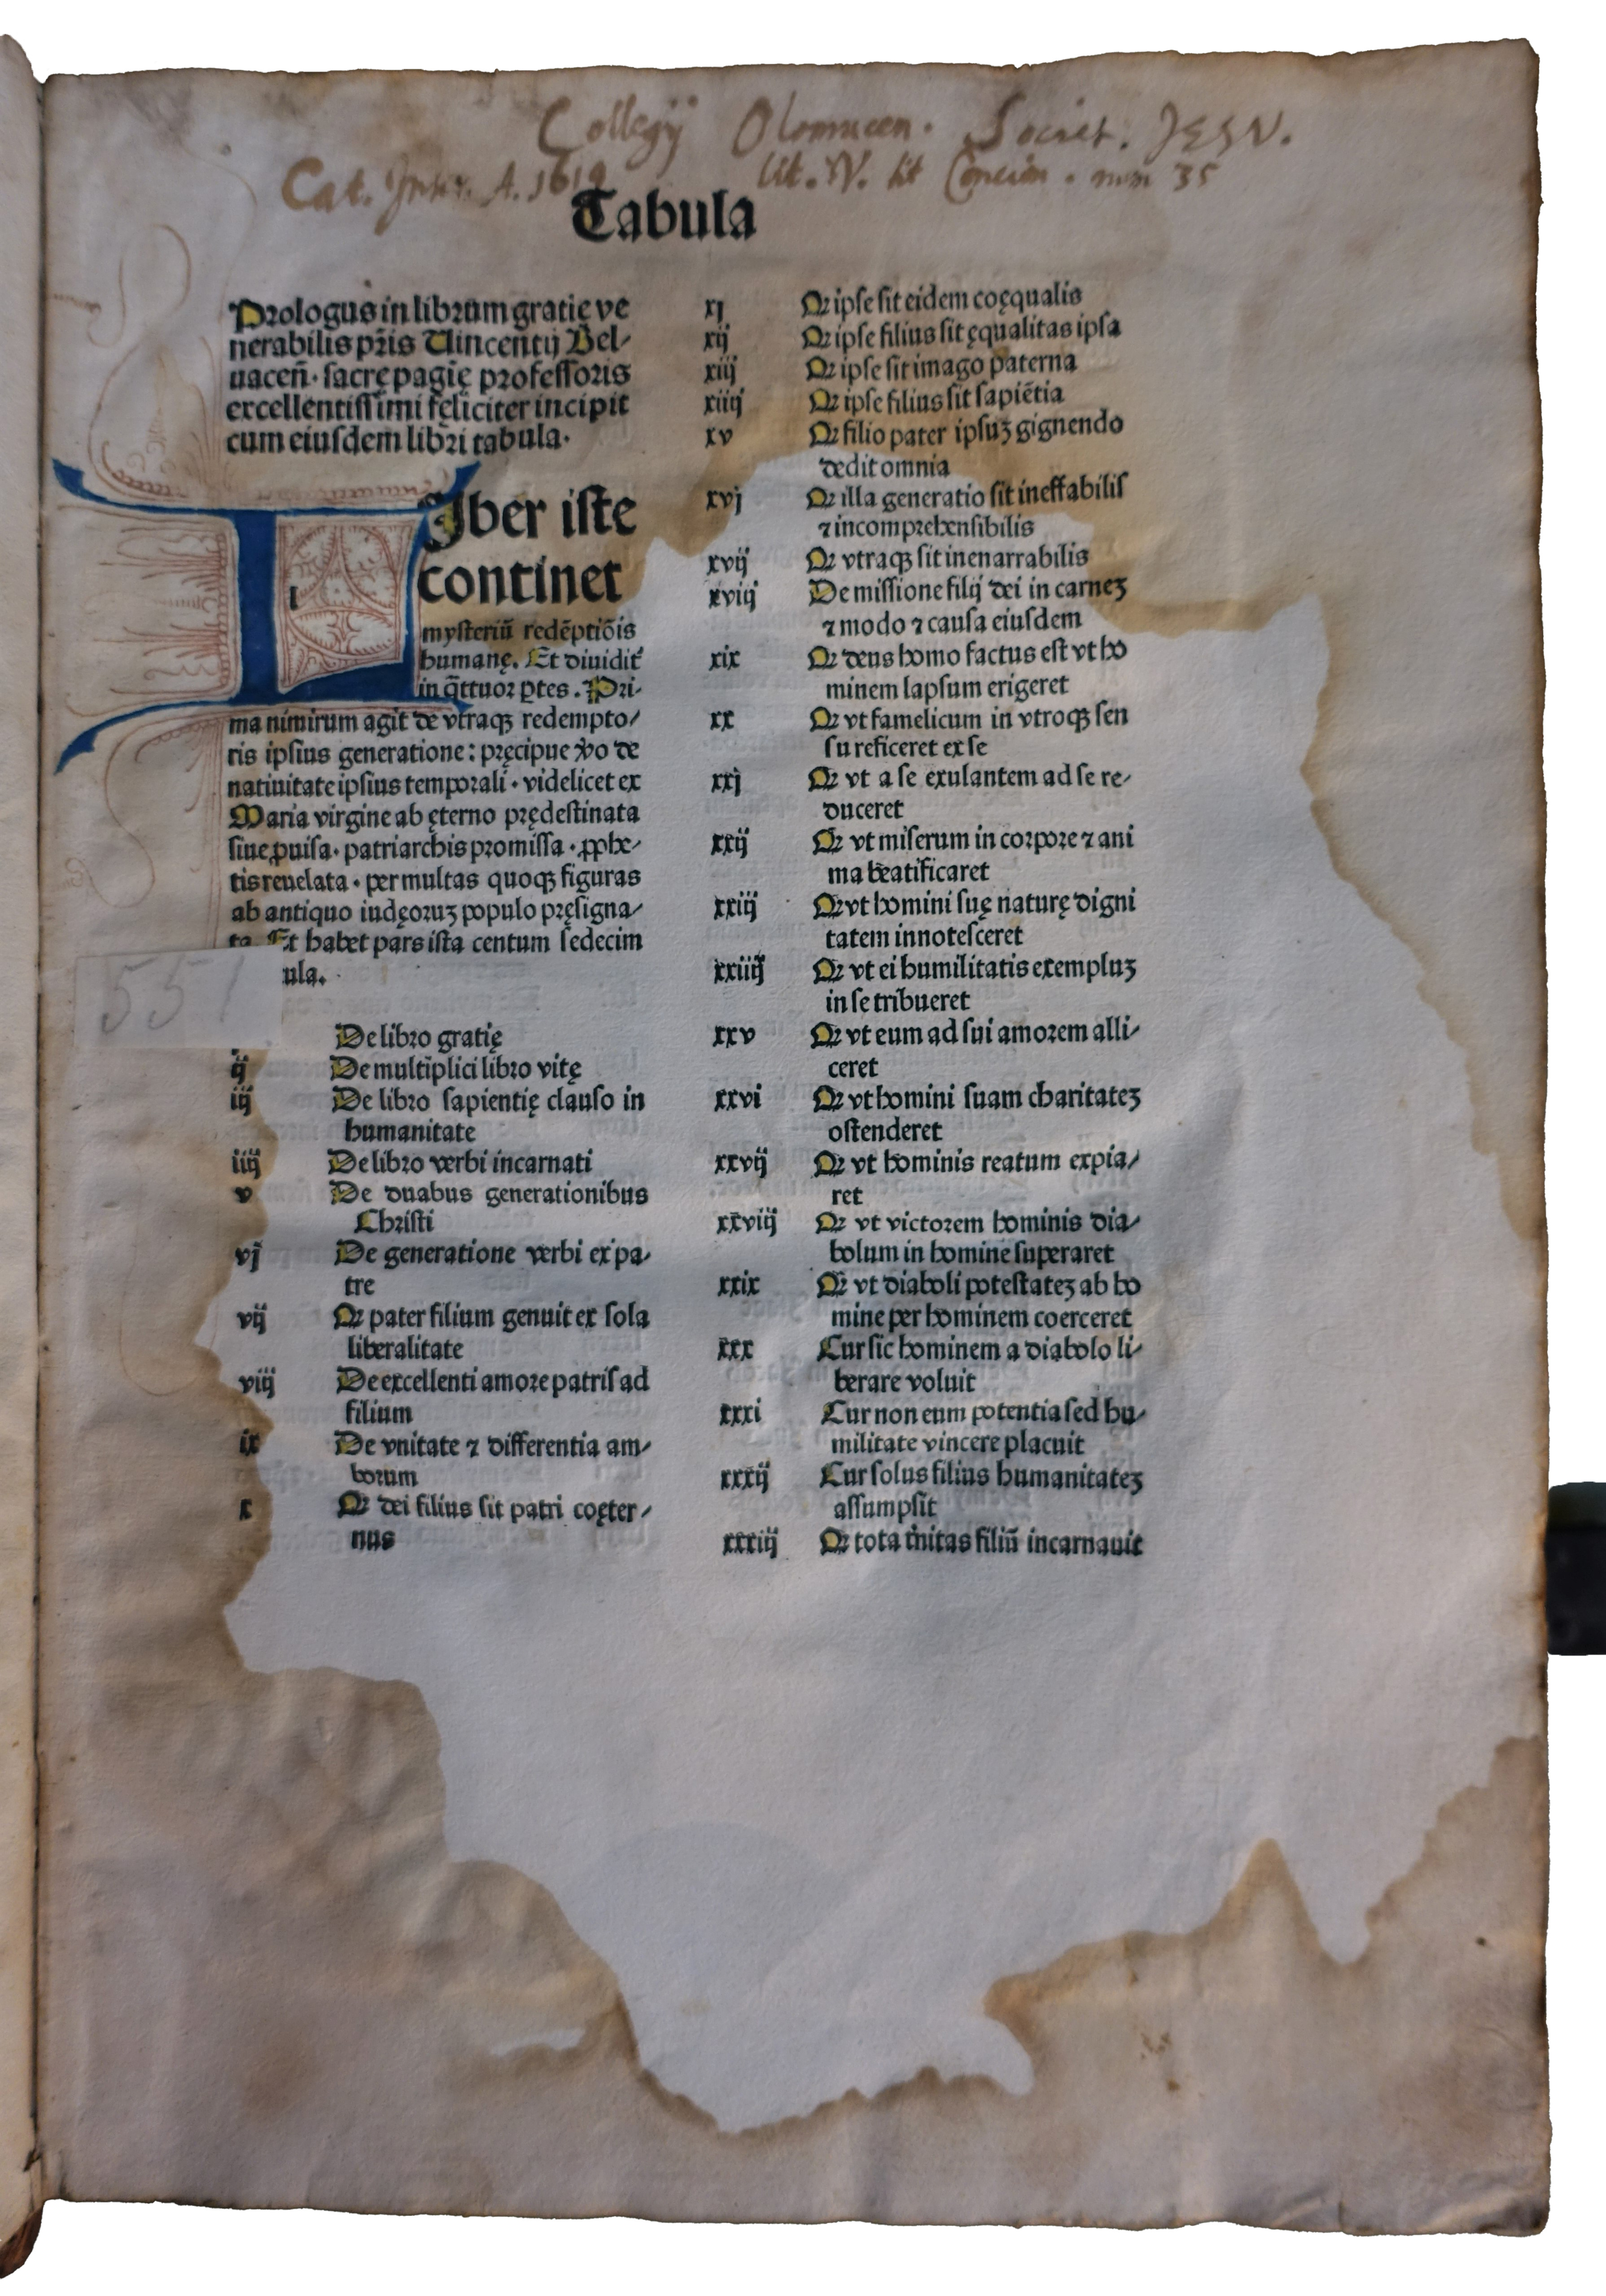 Collegij Olomucen. Societ. JESV.
Cat. A. 1619 lit. V. tit Concion. num 35
Tabula
Prologus in librum gratię ve
nerabilis pr̃is Uincentij Bel⸗
uaceñ. sacrę pagię professoris
excellentissimi fęliciter incipit
cum eiusdem libri tabula.
LIber iste
continet
mysteriũ redẽptiõis
humanę. Et diuidit᷑
in q̃ttuor ꝑtes. Pri⸗
ma nimirum agit de vtraqꝫ redempto⸗
ris ipsius generatione: pręcipue ṽo de
natiuitate ipsius temporali. videlicet ex
Maria virgine ab ęterno prędestinata
siue ꝓuisa. patriarchis promissa. ꝓphe⸗
tis reuelata. per multas quoqꝫ figuras
ab antiquo iudęoruꝫ populo pręsigna⸗
ta. Et habet pars ista centum sedecim
ula.
551
De libro gratię
ij De multiplici libro vitę
iij De libro sapientię clauso in
humanitate
iiij De libro verbi incarnati
v De duabus generationibus
Christi
vj De generatione verbi ex pa⸗
tre
vij Qꝛ pater filium genuit ex sola
liberalitate
viij De excellenti amore patris ad
filium
ix De vnitate ⁊ differentia am⸗
borum
x Qꝛ dei filius sit patri coęter⸗
nus
xj Qꝛ ipse sit eidem coęqualis
xij Qꝛ ipse filius sit ęqualitas ipsa
xiij Qꝛ ipse sit imago paterna
xiiij Qꝛ ipse filius sit sapiẽtia
xv Qꝛ filio pater ipsuꝫ gignendo
dedit omnia
xvj Qꝛ illa generatio sit ineffabilis
⁊ incomprehensibilis
xvij Qꝛ vtraqꝫ sit inenarrabilis
xviij De missione filij dei in carneꝫ
⁊ modo ⁊ causa eiusdem
xix Qꝛ deus homo factus est vt ho
minem lapsum erigeret
xx Qꝛ vt famelicum in vtroqꝫ sen
su reficeret ex se
xxj Qꝛ vt a se exulantem ad se re⸗
duceret
xxij Qꝛ vt miserum in corpore ⁊ ani
ma beatificaret
xxiij Qꝛ vt homini suę naturę digni
tatem innotesceret
xxiiij Qꝛ vt ei humilitatis exempluꝫ
in se tribueret
xxv Qꝛ vt eum ad sui amorem alli⸗
ceret
xxvi Qꝛ vt homini suam charitateꝫ
ostenderet
xxvij Qꝛ vt hominis reatum expia⸗
ret
xxviij Qꝛ vt victorem hominis dia⸗
bolum in homine superaret
xxix Qꝛ vt diaboli potestateꝫ ab ho
mine per hominem coerceret
xxx Cur sic hominem a diabolo li⸗
berare voluit
xxxi Cur non eum potentia sed hu⸗
militate vincere placuit
xxxij Cur solus filius humanitateꝫ
assumpsit
xxxiij Qꝛ tota tñitas filiũ incarnauit